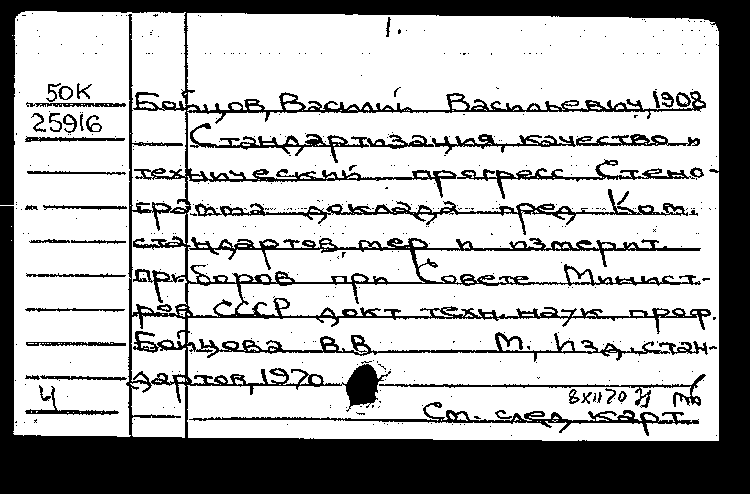 1.
50К
25916
Бойцов, Василий Васильевич, 1908
Стандартизация, качество и
технический прогресс. Стено-
грамма доклада пред. Ком.
стандартов, мер и измерит.
приборов при Совете Минист-
ров СССР докт. техн. наук. проф.
Бойцова В.В. М., Изд. стан-
дартов, 1970
Ч
См. след. карт.